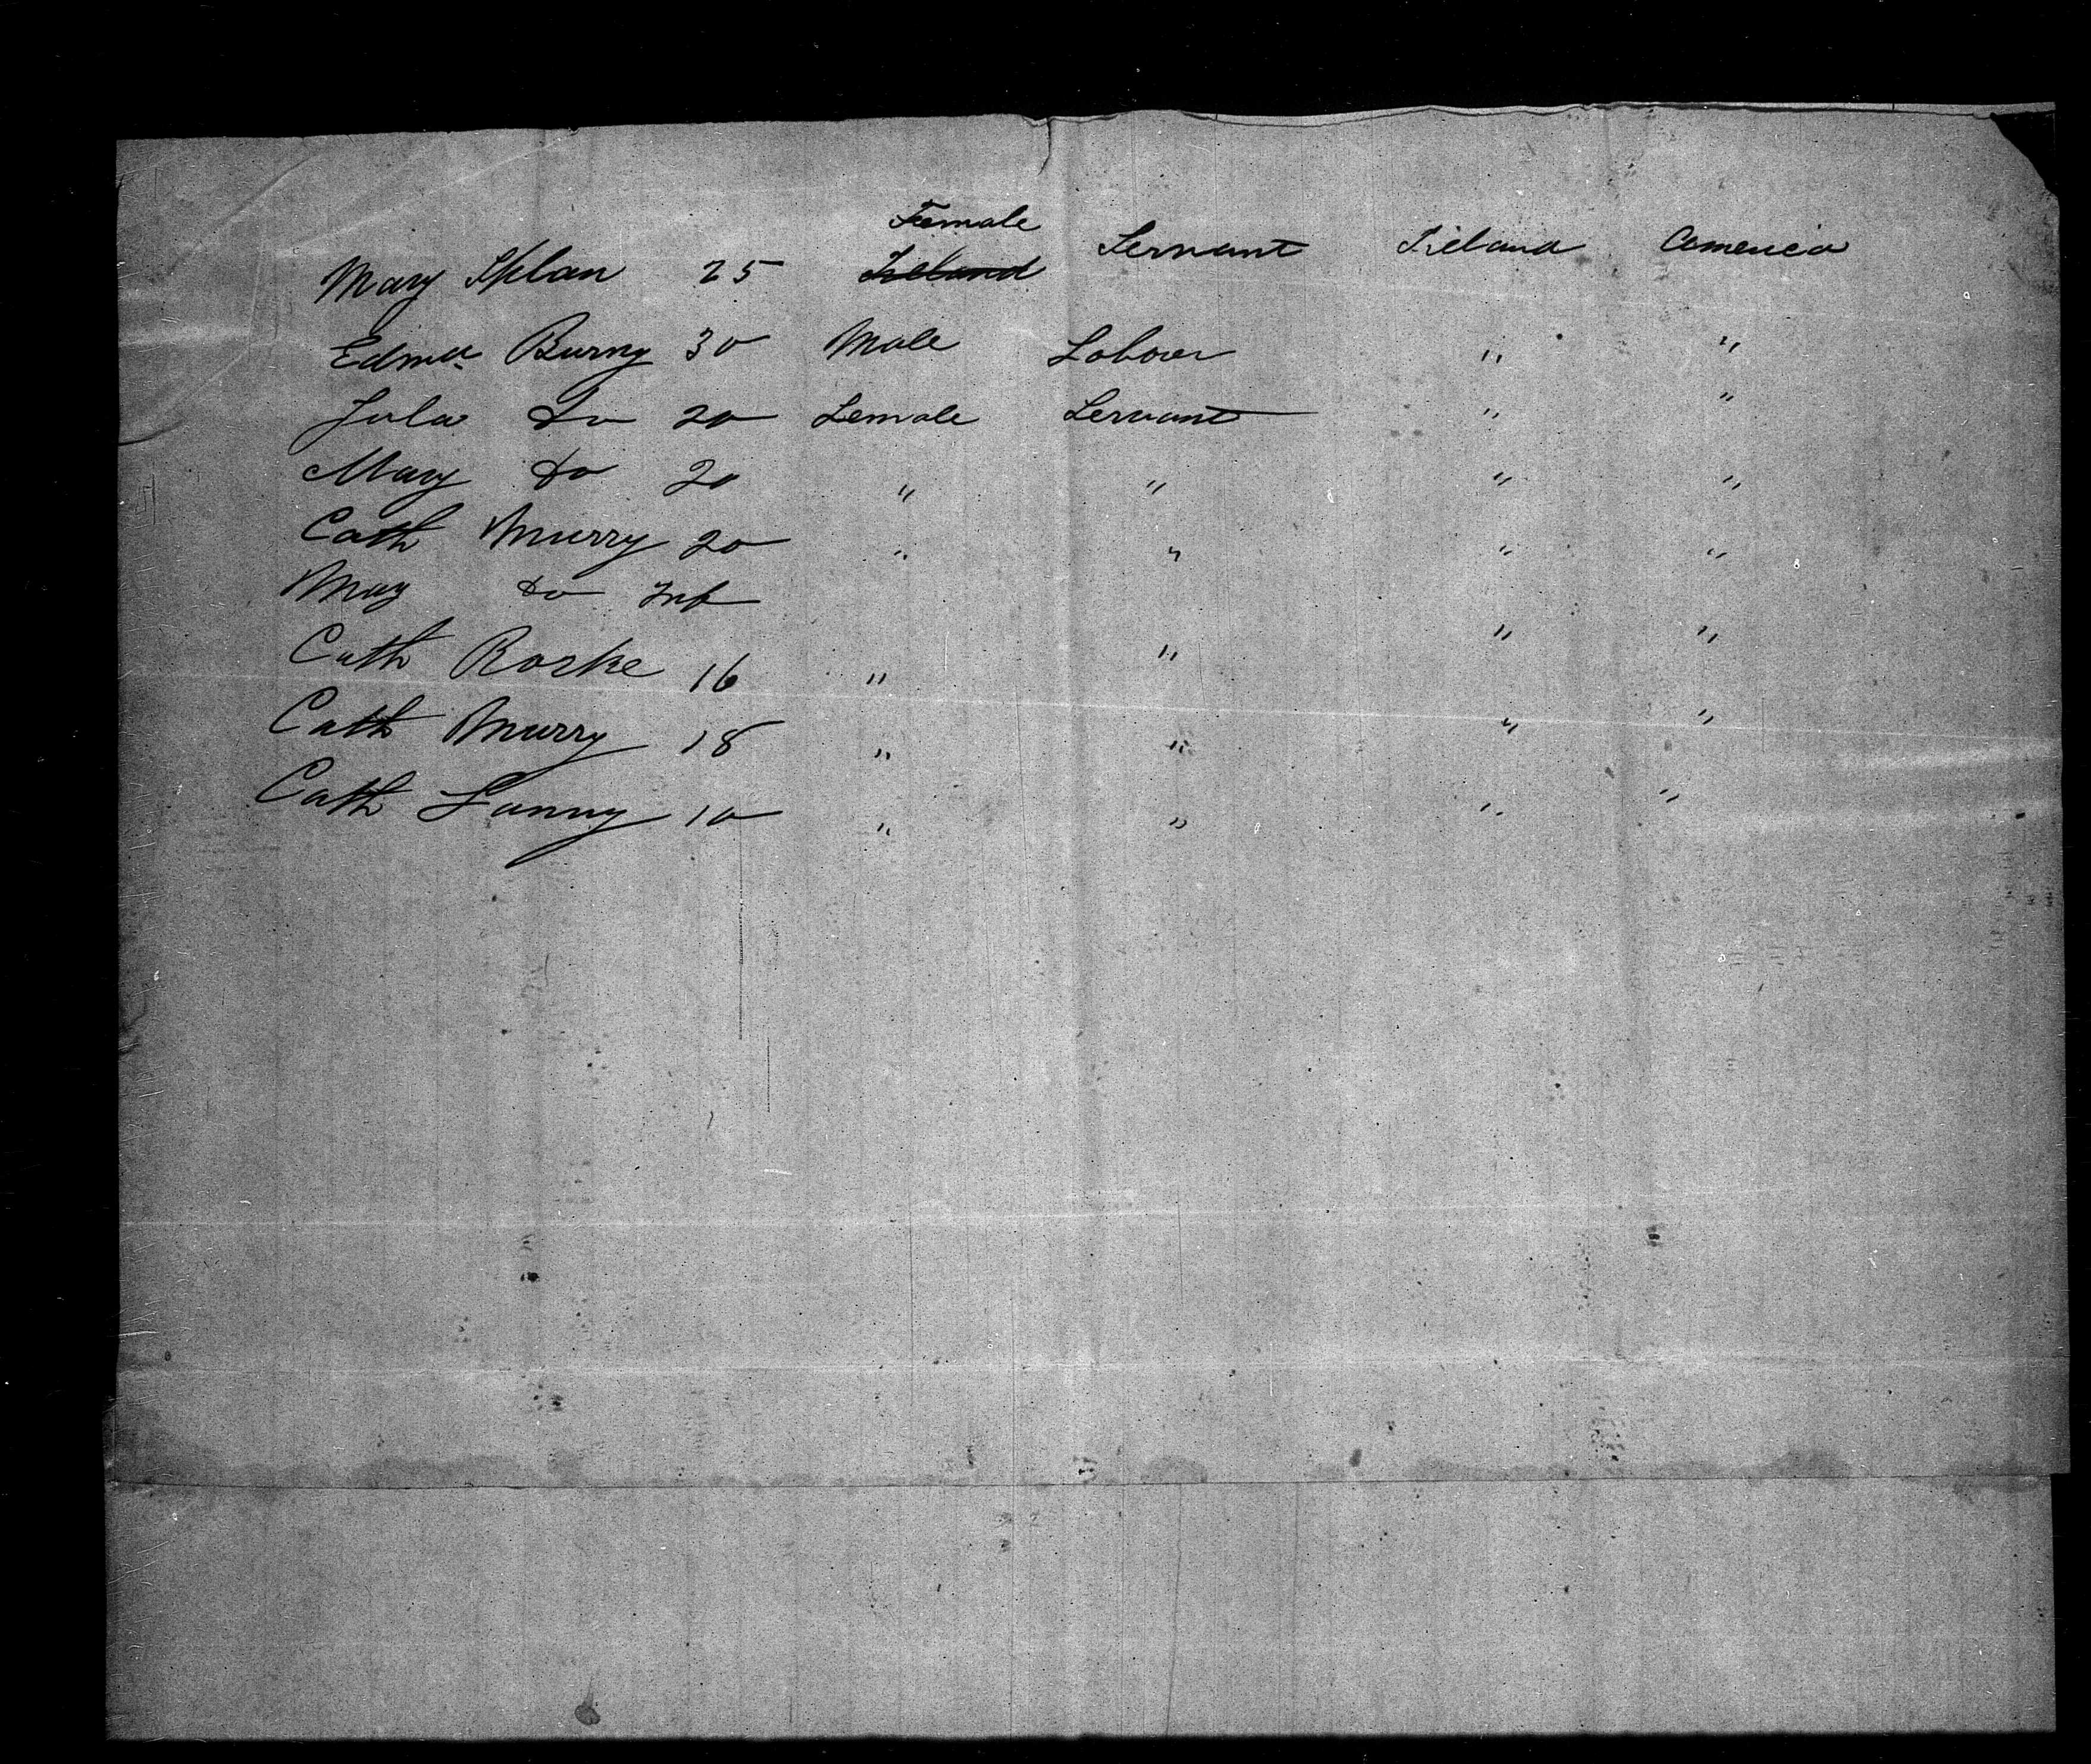 Female
Mary Splan 25 Ireland Servant Ireland America
Edmd Burny 30 Male Labour " "
Jula Do 20 Female Servant " "
Mary do 20 " " " "
Cath Murry 20 " " " "
May do Inf
Cath Rorke 16 " " " "
Cath Murry 18 " " " "
Cath Lunny 10 " " " "